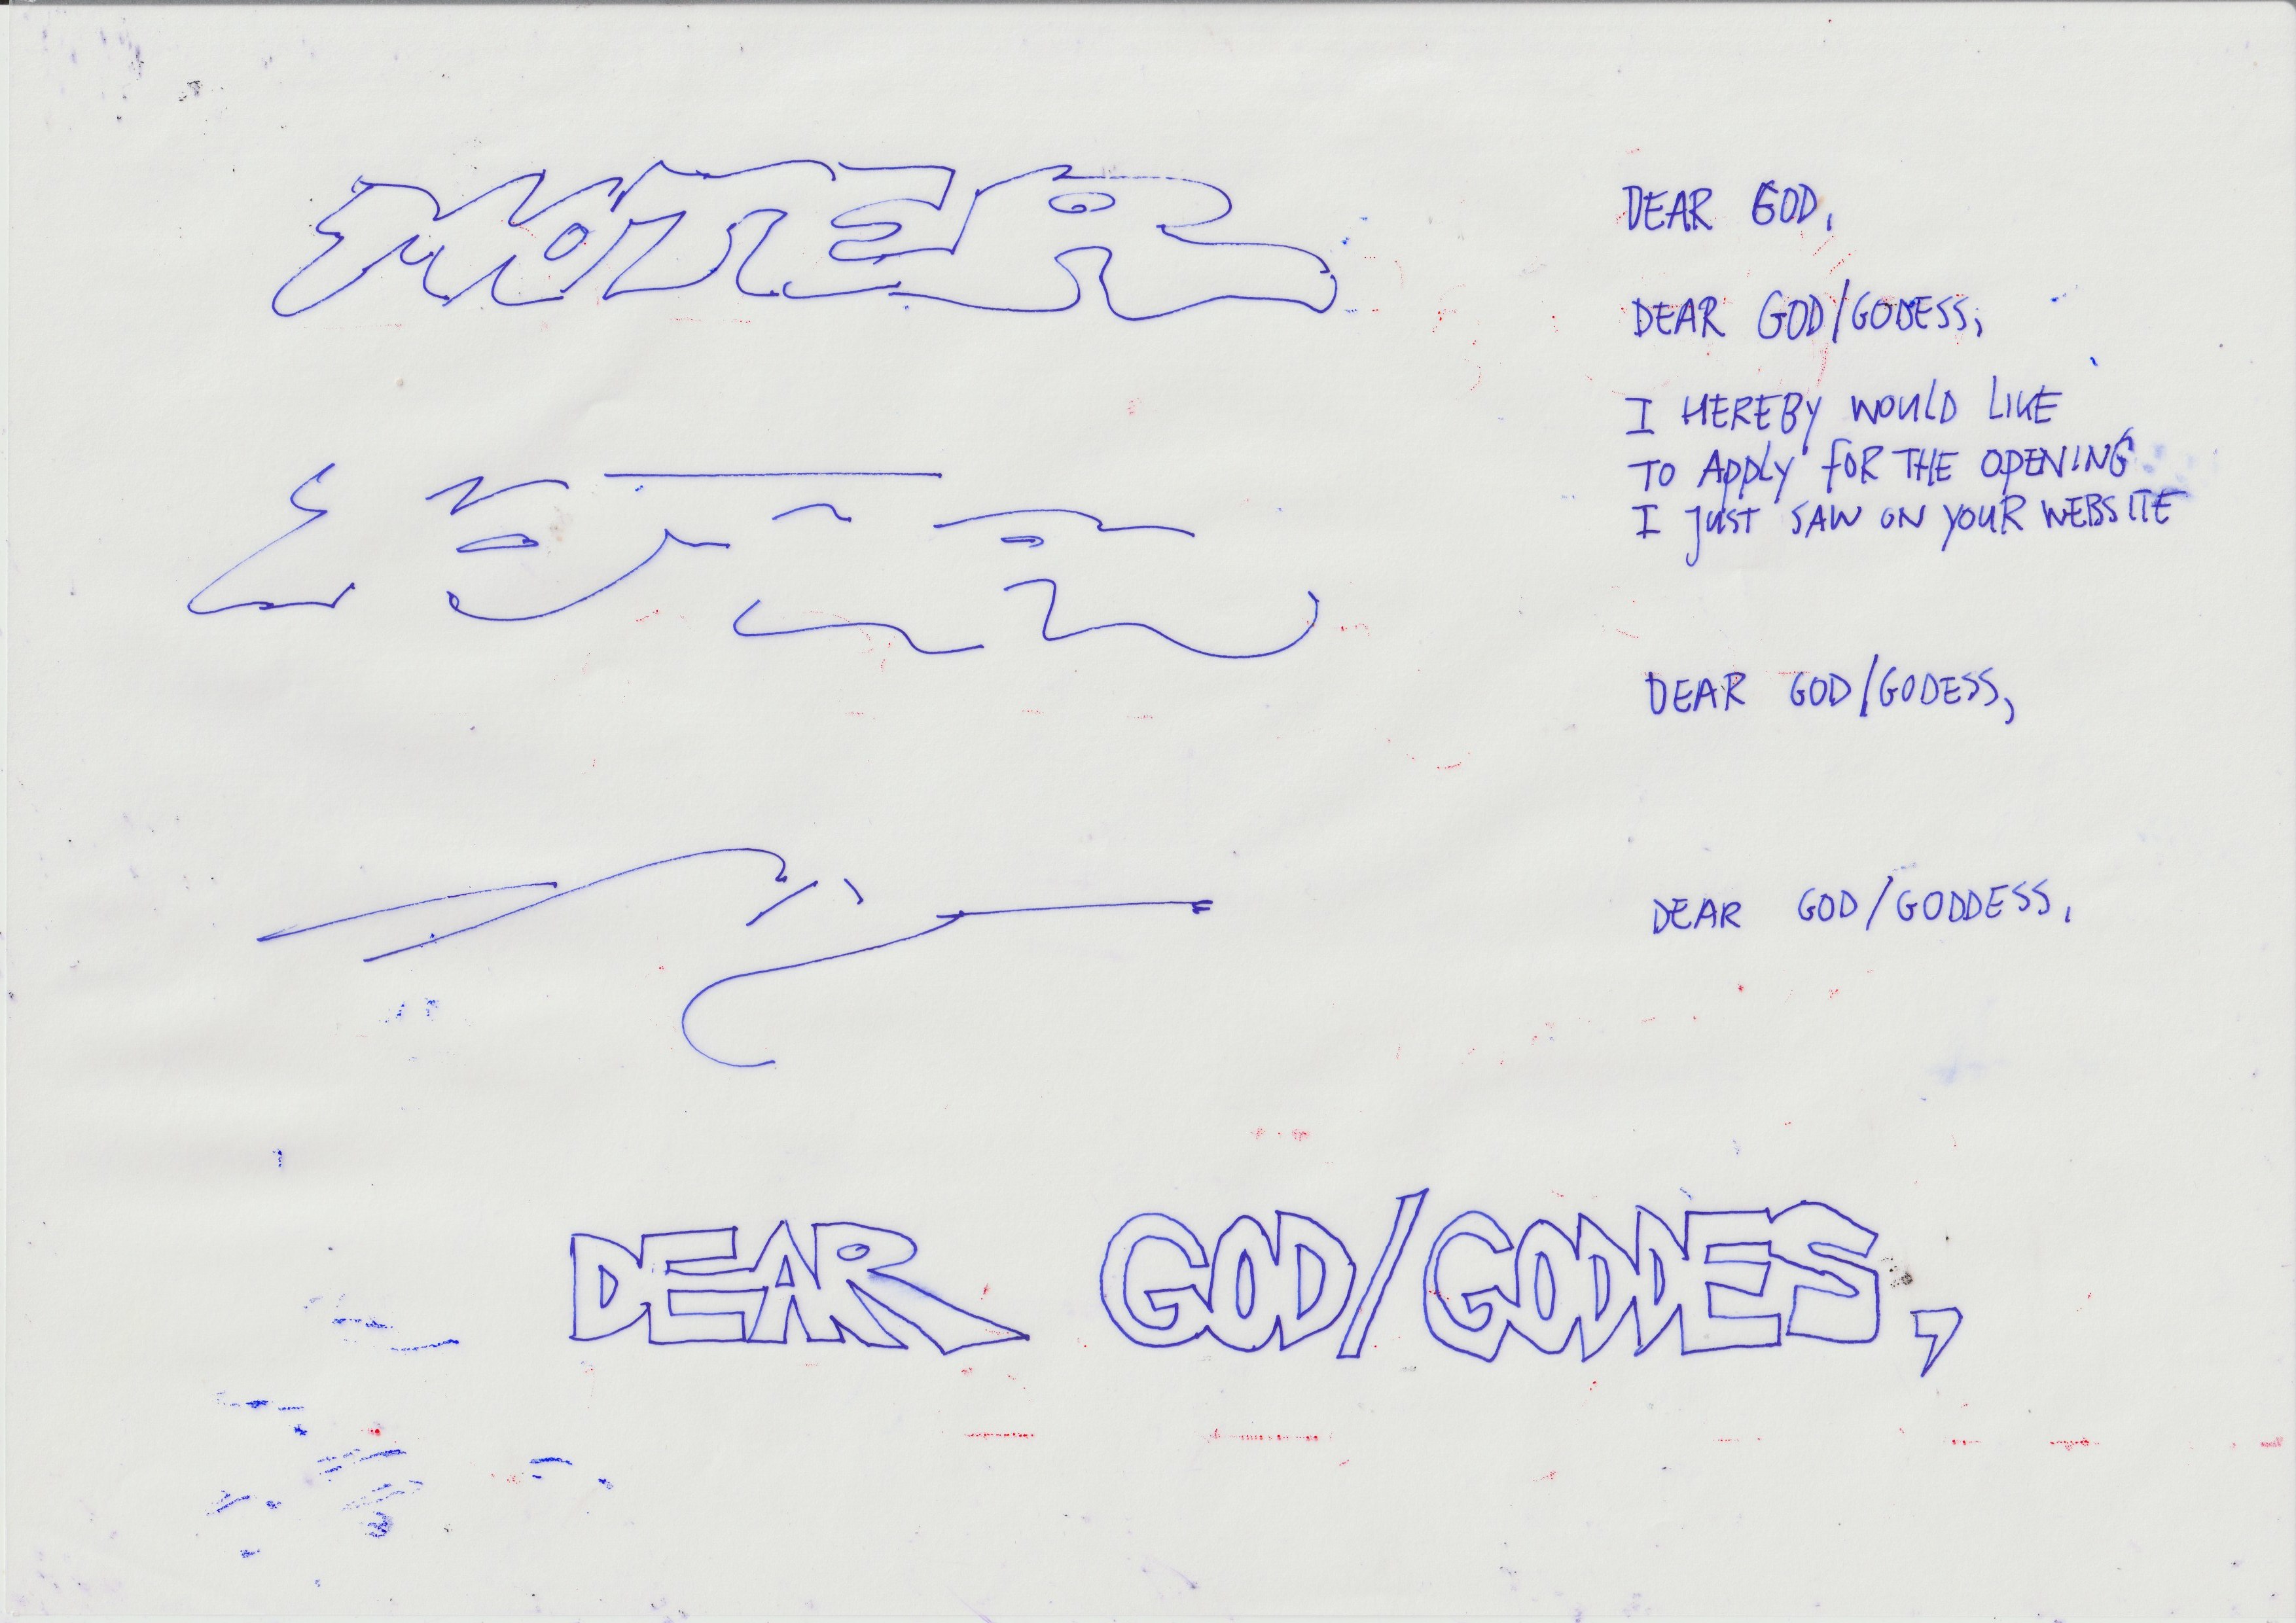 DEAR GOD,
DEAR GOD/GODESS,
I HEREBY WOULD LIKE
TO APPLY FOR THE OPENING
I JUST SAW ON YOUR WEBSITE
DEAR GOD/GODESS,
DEAR GOD/GODDESS,
DEAR GOD/GODDES,